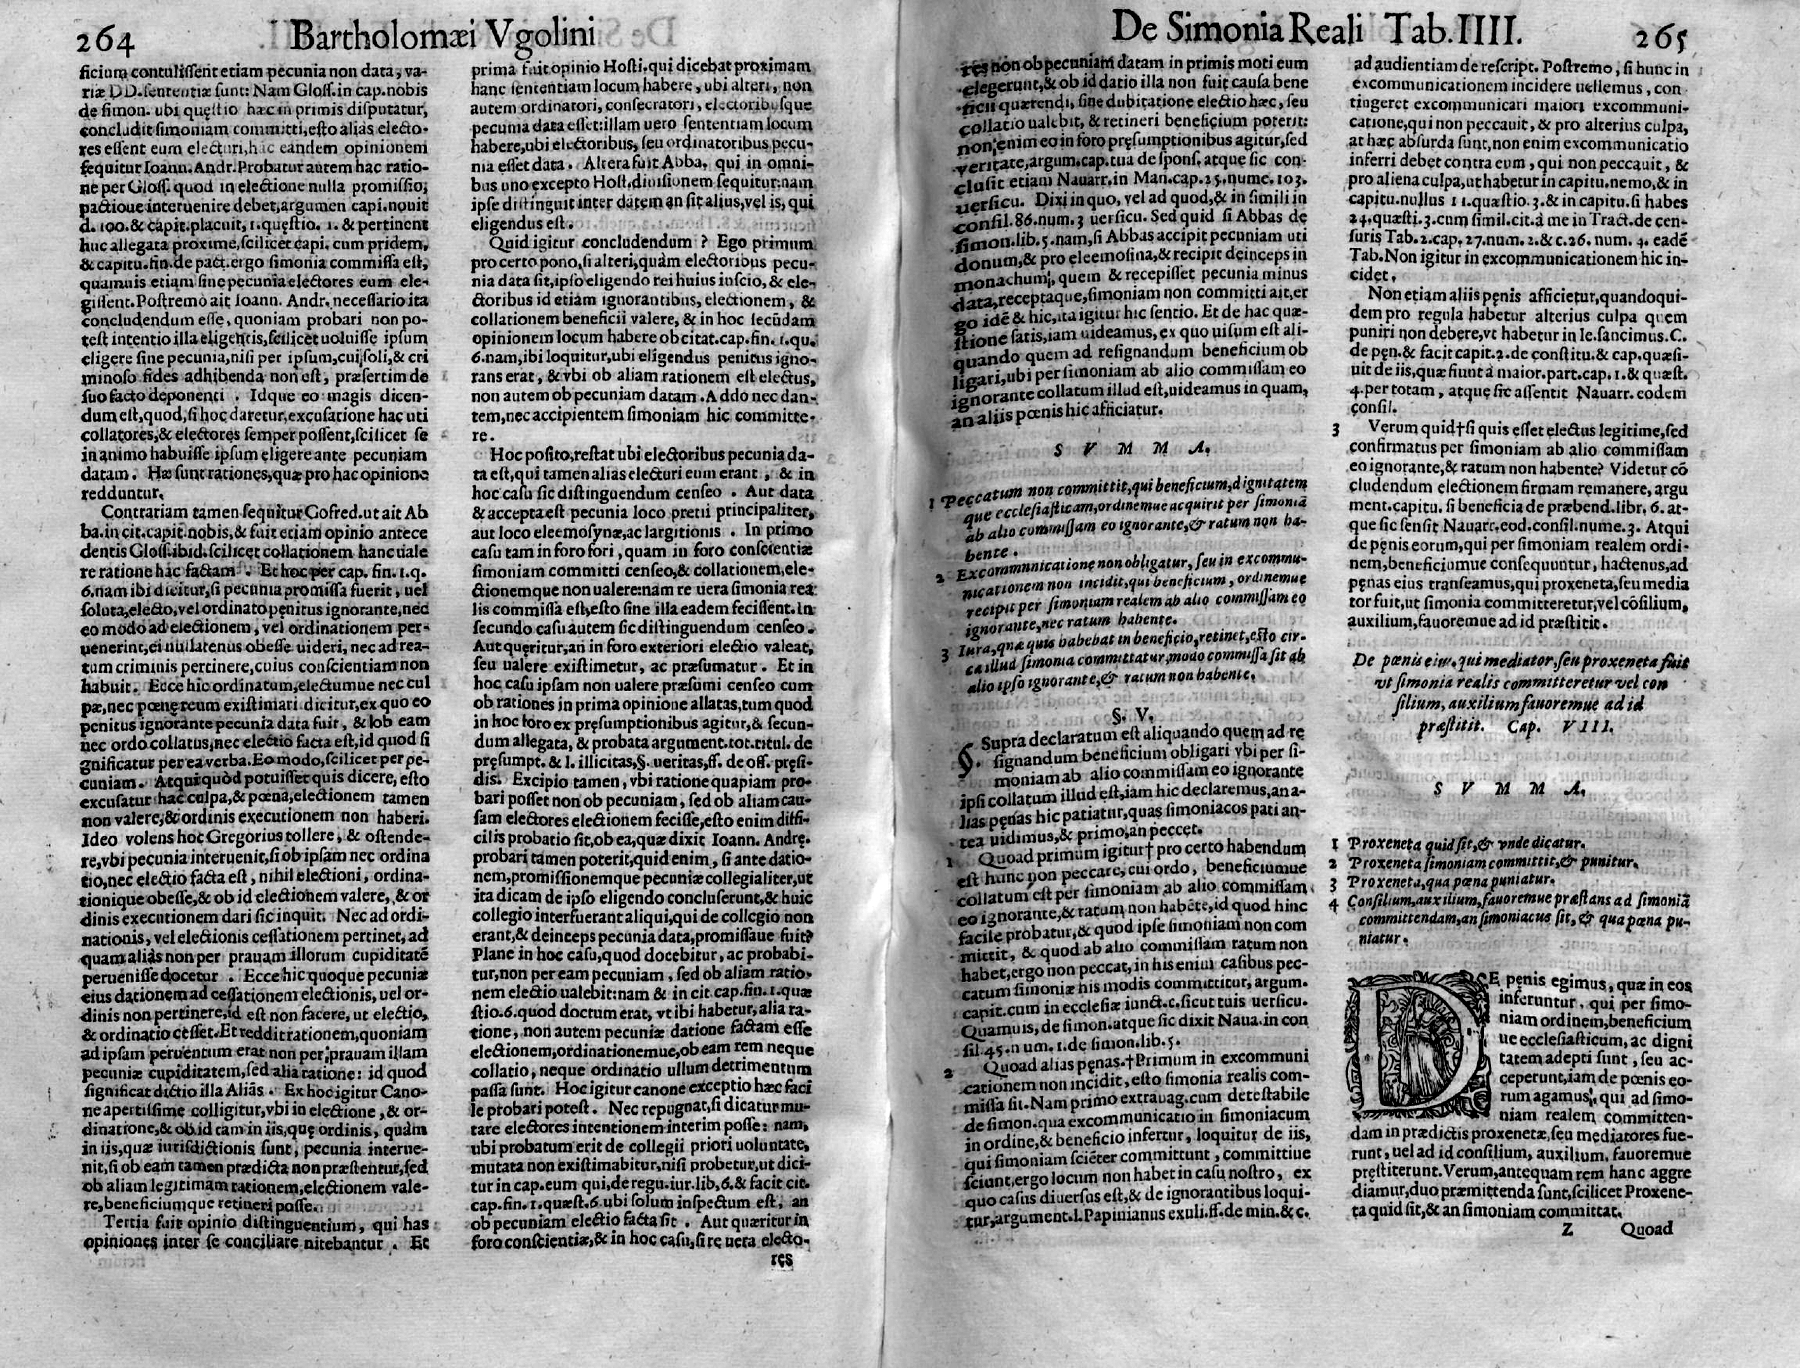 264
Bartholomæi Vgolini
ficium contulissent etiam pecunia non data, va-
riæ DD. sententiæ sunt: Nam Gloss. in cap. nobis
de simon. ubi quęstio hæc in primis disputatur,
concludit simoniam committi, esto alias electo-
res essent eum electuri, hāc eandem opinionem
sequitur Ioann. Andr. Probatur autem hac ratio-
ne per Gloss. quod in electione nulla promissio,
pactioue interuenire debet, argumen capi. nouit
d. 100. & capit. placuit, 1. quęstio. 1. & pertinent
huc allegata proxime, scilicet capi. cum pridem,
& capitu. fin. de pact. ergo simonia commissa est,
quamuis etiam sine pecunia electores eum ele-
gissent. Postremò ait Ioann. Andr. necessario ita
concludendum esse, quoniam probari non po-
test intentio illa eligentis, scilicet uoluisse ipsum
eligere sine pecunia, nisi per ipsum, cui soli, & cri
minoso fides adhibenda non est, præsertim de
suo facto deponenti. Idque eo magis dicen-
dum est, quod, si hoc daretur, excusatione hac uti
collatores, & electores semper possent, scilicet se
in animo habuisse ipsum eligere ante pecuniam
datam. Hæ sunt rationes, quæ pro hac opinione
redduntur.
Contrariam tamen sequitur Gofred. ut ait Ab
ba. in cit. capit. nobis, & fuit etiam opinio antece
dentis Gloss. ibid. scilicet collationem hanc uale
re ratione hac factam. Et hoc per cap. fin. 1. q.
6. nam ibi dicitur, si pecunia promissa fuerit, uel
soluta, electo, vel ordinato penitus ignorante, nec
eo modo ad electionem, vel ordinationem per-
uenerint, ei nullatenus obesse uideri, nec ad rea-
tum criminis pertinere, cuius conscientiam non
habuit. Ecce hic ordinatum, electumue nec cul
pæ, nec pœnę reum existimari dicitur, ex quo eo
penitus ignorante pecunia data fuit, & ob eam
nec ordo collatus, nec electio facta est, id quod si
gnificatur per ea verba. Eo modo, scilicet per pe-
cuniam. Atqui quòd potuisset quis dicere, esto
excusatur hac culpa, & pœna, electionem tamen
non valere, & ordinis executionem non haberi.
Ideo volens hoc Gregorius tollere, & ostende-
re, vbi pecunia interuenit, si ob ipsam nec ordina
tio, nec electio facta est, nihil electioni, ordina-
tionique obesse, & ob id electionem valere, & or
dinis executionem dari sic inquit. Nec ad ordi-
nationis, vel electionis cessationem pertinet, ad
quam aliàs non per prauam illorum cupiditatē
peruenisse docetur. Ecce hic quoque pecuniæ
eius dationem ad cessationem electionis, uel or-
dinis non pertinere, id est non facere, ut electio,
& ordinatio cesset. Et reddit rationem, quoniam
ad ipsam peruentum erat non per prauam illam
pecuniæ cupiditatem, sed alia ratione: id quod
significat dictio illa Aliàs. Ex hoc igitur Cano-
ne apertissime colligitur, vbi in electione, & or-
dinatione, & ob id tam in iis, quę ordinis, quàm
in iis, quæ iurisdictionis sunt, pecunia interue-
nit, si ob eam tamen prædicta non præstentur, sed
ob aliam legitimam rationem, electionem vale-
re, beneficiumque retineri posse.
Tertia fuit opinio distinguentium, qui has
opiniones inter se conciliare nitebantur. Et
prima fuit opinio Hosti. qui dicebat proximam
hanc sententiam locum habere, ubi alteri, non
autem ordinatori, consecratori, electoribusque
pecunia data esset: illam uero sententiam locum
habere, ubi electoribus, seu ordinatoribus pecu-
nia esset data. Altera fuit Abba. qui in omni-
bus uno excepto Host. diuisionem sequitur: nam
ipse distinguit inter datem an sit alius, vel is, qui
eligendus est.
Quid igitur concludendum? Ego primum
pro certo pono, si alteri, quàm electoribus pecu-
nia data sit, ipso eligendo rei huius inscio, & ele-
ctoribus id etiam ignorantibus, electionem, &
collationem beneficii valere, & in hoc secūdam
opinionem locum habere ob citat. cap. fin. 1. qu.
6. nam, ibi loquitur, ubi eligendus penitus igno-
rans erat, & vbi ob aliam rationem est electus,
non autem ob pecuniam datam. Addo nec dan-
tem, nec accipientem simoniam hic committe-
re.
Hoc posito, restat ubi electoribus pecunia da-
ta est, qui tamen alias electuri eum erant, & in
hoc casu sic distinguendum censeo. Aut data
& accepta est pecunia loco pretii principaliter,
aut loco eleemosynæ, ac largitionis. In primo
casu tam in foro fori, quam in foro conscientiæ
simoniam committi censeo, & collationem, ele-
ctionemque non ualere: nam re uera simonia rea
lis commissa est, esto sine illa eadem fecissent. In
secundo casu autem sic distinguendum censeo.
Aut quęritur, an in foro exteriori electio valeat,
seu ualere existimetur, ac præsumatur. Et in
hoc casu ipsam non ualere præsumi censeo cum
ob rationes in prima opinione allatas, tum quod
in hoc foro ex pręsumptionibus agitur, & secun-
dum allegata, & probata argument. tot. titul. de
pręsumpt. & l. illicitas, §. ueritas, ff. de off. pręsi-
dis. Excipio tamen, vbi ratione quapiam pro-
bari posset non ob pecuniam, sed ob aliam cau-
sam electores electionem fecisse, esto enim diffi-
cilis probatio sit, ob ea, quæ dixit Ioann. Andrę.
probari tamen poterit, quid enim, si ante datio-
nem, promissionemque pecuniæ collegialiter, ut
ita dicam de ipso eligendo concluserunt, & huic
collegio interfuerant aliqui, qui de collegio non
erant, & deinceps pecunia data, promissaue fuit?
Plane in hoc casu, quod docebitur, ac probabi-
tur, non per eam pecuniam, sed ob aliam ratio-
nem electio ualebit: nam & in cit. cap. fin. 1. quæ
stio. 6. quod doctum erat, vt ibi habetur, alia ra-
tione, non autem pecuniæ datione factam esse
electionem, ordinationemue, ob eam rem neque
collatio, neque ordinatio ullum detrimentum
passa sunt. Hoc igitur canone exceptio hæc faci
le probari potest. Nec repugnat, si dicatur mu-
tare electores intentionem interim posse: nam,
ubi probatum erit de collegii priori uoluntate,
mutata non existimabitur, nisi probetur, ut dici-
tur in cap. eum qui, de regu. iur. lib. 6. & facit cit.
cap. fin. 1. quæst. 6. ubi solum inspectum est, an
ob pecuniam electio facta sit. Aut quæritur in
foro conscientiæ, & in hoc casu, si re uera electo-
res
De Simonia Reali Tab. IIII.
265
res non ob pecuniam datam in primis moti eum
elegerunt, & ob id datio illa non fuit causa bene
ficii quærendi, sine dubitatione electio hæc, seu
collatio ualebit, & retineri beneficium poterit:
non enim eo in foro pręsumptionibus agitur, sed
veritate, argum. cap. tua de spons. atque sic con-
clusit etiam Nauarr. in Man. cap. 25. nume. 103.
uersicu. Dixi in quo, vel ad quod, & in simili in
consil. 86. num. 3 uersicu. Sed quid si Abbas de
simon. lib. 5. nam, si Abbas accipit pecuniam uti
donum, & pro eleemosina, & recipit deinceps in
monachum, quem & recepisset pecunia minus
data, receptaque, simoniam non committi ait, er
go idē & hic, ita igitur hic sentio. Et de hac quæ-
stione satis, iam uideamus, ex quo uisum est ali-
quando quem ad resignandum beneficium ob
ligari, ubi per simoniam ab alio commissam eo
ignorante collatum illud est, uideamus in quam,
an aliis pœnis hic afficiatur.
S V M M A.
1 Peccatum non committit, qui beneficium, dignitatem
que ecclesiasticam, ordinemue acquirit per simoniā
ab alio commissam eo ignorante, & ratum non ha-
bente.
2 Excommnnicatione non obligatur, seu in excommu-
nicationem non incidit, qui beneficium, ordinemue
recipit per simoniam realem ab alio commissam eo
ignorante, nec ratum habente.
3 Iura, quæ quis habebat in beneficio, retinet, esto cir-
ca illud simonia committatur, modo commissa sit ab
alio ipso ignorante, & ratum non habente.
§. V.
§. Supra declaratum est aliquando quem ad re
signandum beneficium obligari vbi per si-
moniam ab alio commissam eo ignorante
ipsi collatum illud est, iam hic declaremus, an a-
lias pęnas hic patiatur, quas simoniacos pati an-
tea uidimus, & primo, an peccet.
1 Quoad primum igitur† pro certo habendum
est hunc non peccare, cui ordo, beneficiumue
collatum est per simoniam ab alio commissam
eo ignorante, & ratum non habēte, id quod hinc
facile probatur, & quod ipse simoniam non com
mittit, & quod ab alio commissam ratum non
habet, ergo non peccat, in his enim casibus pec-
catum simoniæ his modis committitur, argum.
capit. cum in ecclesiæ iunct. c. sicut tuis uersicu.
Quamuis, de simon. atque sic dixit Naua. in con
sil. 45. n um. 1. de simon. lib. 5.
2 Quoad alias pęnas. †Primum in excommuni
cationem non incidit, esto simonia realis com-
missa sit. Nam primo extrauag. cum detestabile
de simon. qua excommunicatio in simoniacum
in ordine, & beneficio infertur, loquitur de iis,
qui simoniam sciēter committunt, committiue
sciunt, ergo locum non habet in casu nostro, ex
quo casus diuersus est, & de ignorantibus loqui-
tur, argument. l. Papinianus exuli. ff. de min. & c.
ad audientiam de rescript. Postremo, si hunc in
excommunicationem incidere uellemus, con
tingeret excommunicari maiori excommuni-
catione, qui non peccauit, & pro alterius culpa,
at hæc absurda sunt, non enim excommunicatio
inferri debet contra eum, qui non peccauit, &
pro aliena culpa, ut habetur in capitu. nemo, & in
capitu. nullus 11. quæstio. 3. & in capitu. si habes
24. quæsti. 3. cum simil. cit. à me in Tract. de cen-
suris Tab. 2. cap. 27. num. 2. & c. 26. num. 4. eadē
Tab. Non igitur in excommunicationem hic in-
cidet.
Non etiam aliis pęnis afficietur, quandoqui-
dem pro regula habetur alterius culpa quem
puniri non debere, vt habetur in le. sancimus. C.
de pęn. & facit capit. 2. de constitu. & cap. quæsi-
uit de iis, quæ fiunt à maior. part. cap. 1. & quæst.
4. per totam, atque sic assentit Nauarr. eodem
consil.
3 Verum quid† si quis esset electus legitime, sed
confirmatus per simoniam ab alio commissam
eo ignorante, & ratum non habente? Videtur cō
cludendum electionem firmam remanere, argu
ment. capitu. si beneficia de præbend. libr. 6. at-
que sic sensit Nauarr. eod. consil. nume. 3. Atqui
de pęnis eorum, qui per simoniam realem ordi-
nem, beneficiumue consequuntur, hactenus, ad
pęnas eius transeamus, qui proxeneta, seu media
tor fuit, ut simonia committeretur, vel cōsilium,
auxilium, fauoremue ad id præstitit.
De pœnis eius, qui mediator, seu proxeneta fuit
vt simonia realis committeretur vel con
silium, auxilium fauoremue ad id
præstitit. Cap. VIII.
S V M M A.
1 Proxeneta quid sit, & vnde dicatur.
2 Proxeneta simoniam committit, & punitur.
3 Proxeneta, qua pœna puniatur.
4 Consilium, auxilium, fauoremue præstans ad simoniā
committendam, an simoniacus sit, & qua pœna pu-
niatur.
DE pęnis egimus, quæ in eos
inferuntur, qui per simo-
niam ordinem, beneficium
ue ecclesiasticum, ac digni
tatem adepti sunt, seu ac-
ceperunt, iam de pœnis eo-
rum agamus, qui ad simo-
niam realem committen-
dam in prædictis proxenetæ, seu mediatores fue-
runt, uel ad id consilium, auxilium, fauoremue
pręstiterunt. Verum, antequam rem hanc aggre
diamur, duo præmittenda sunt, scilicet Proxene-
ta quid sit, & an simoniam committat.
Z Quoad